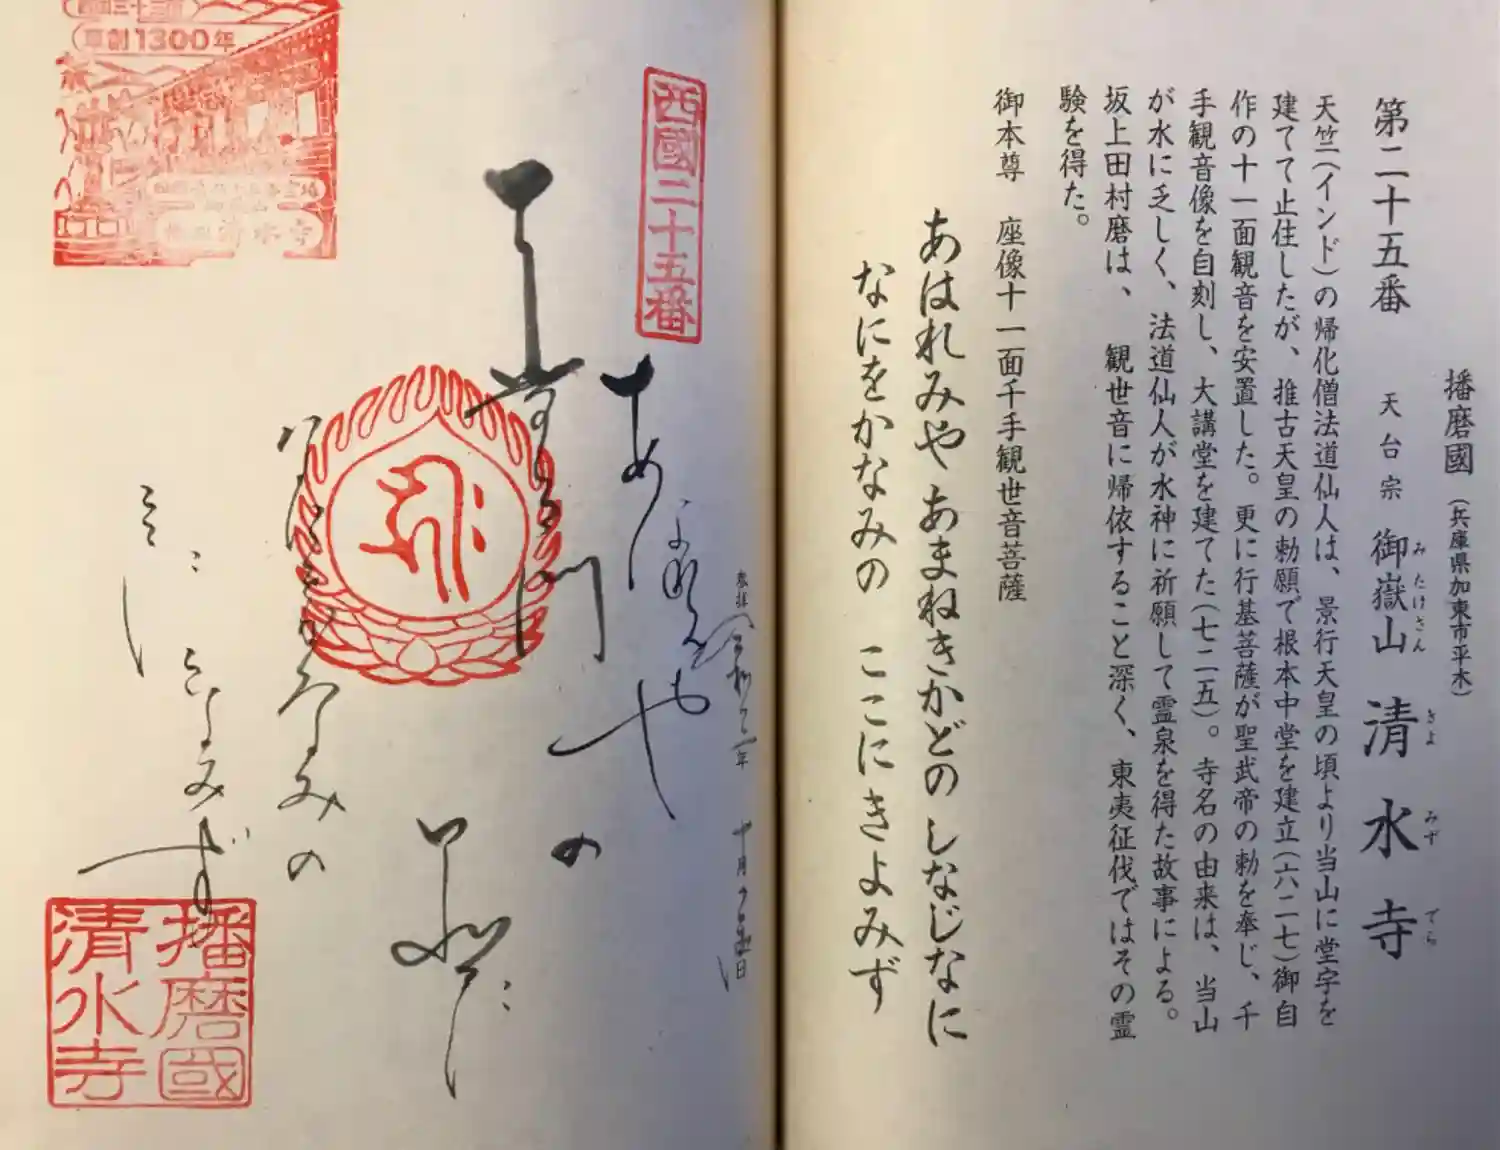 播磨國(兵庫県加東市平木)
第二十五番 天台宗 御嶽山 清水寺
みたけさん きよ みず でら
天竺(インド)の帰化僧法道仙人は、景行天皇の頃より当山に堂宇を
建てて止住したが、推古天皇の勅願で根本中堂を建立(六二七)御自
作の十一面観音を安置した。更に行基菩薩が聖武帝の勅を奉じ、千
手観音像を自刻し、大講堂を建てた(七二五)。寺名の由来は、当山
が水に乏しく、法道仙人が水神に祈願して霊泉を得た故事による。
坂上田村磨は、観世音に帰依すること深く、東夷征伐ではその霊
験を得た。
御本尊 座像十一面千手観世音菩薩
あはれみや あまねきかどの しなじなに
なにをかなみの ここにきよみず
奉拝 令和二年 十月
西國二十五番
あはれみや
門の
なにをかなみの
きよみず
草創1300年
清水寺
播磨國
清水寺